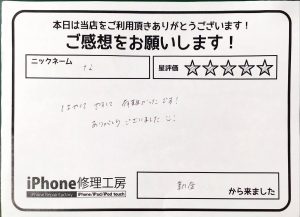 本日は当店をご利用頂きありがとうございます!
ご感想をお願いします!
ニックネーム
星評価 ☆☆☆☆☆
ありがとう ございました
iPhone修理工房
iPhone Repair Factory iPhone/iPad/iPod touch
から来ました